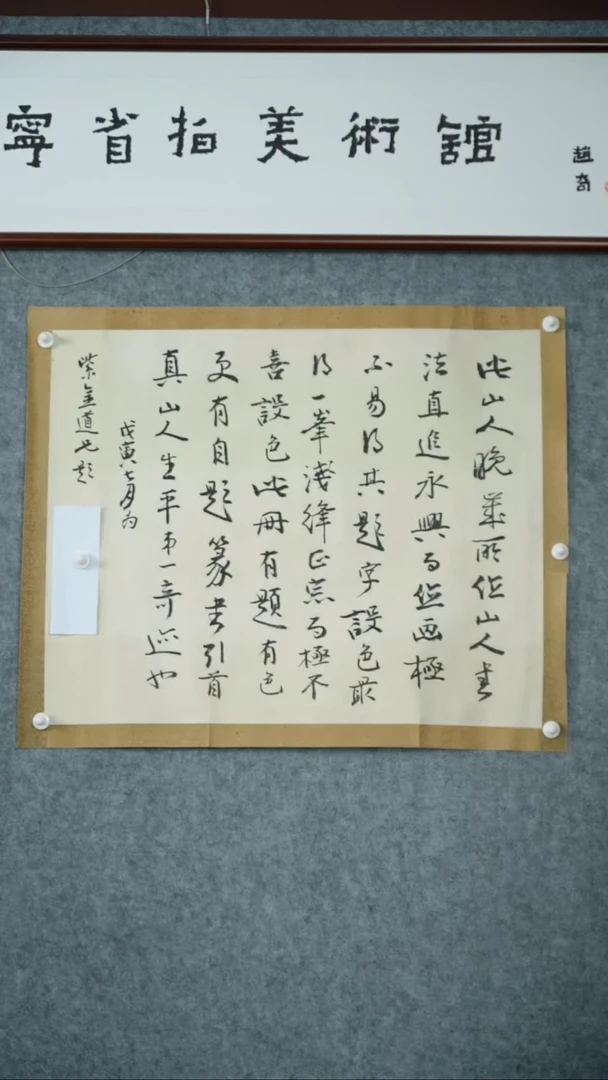 寧省拍美術館
趙奇
此山人晚歲所作山人書
法直追永興而作畫極
不易得其題字設色最
得一峯淺絳正宗而極不
喜設色此冊有題有色
更有自題篆書引首
真山人生平第一奇迹也
戊寅七月為
紫金道兄題